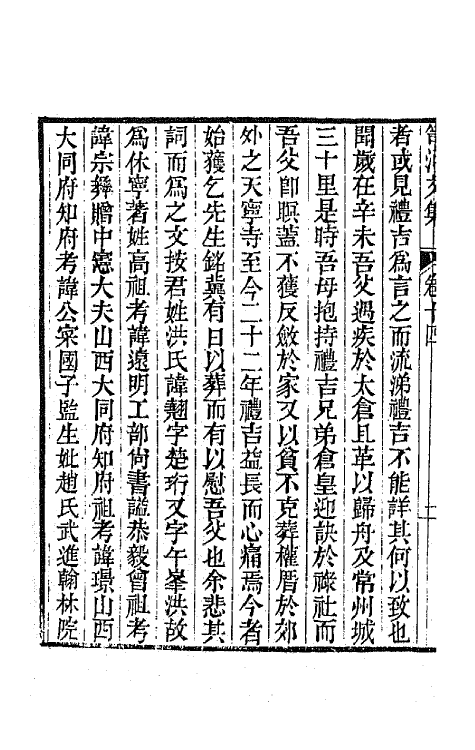 笥河文集 卷十四 二
者或見禮吉爲言之而流涕禮吉不能詳其何以致也
聞歲在辛未吾父遇疾於太倉且革以歸舟及常州城
三十里是時吾母抱持禮吉兄弟倉皇迎訣於祿社而
吾父卽瞑蓋不獲反斂於家又以貧不克葬權厝於郊
外之天寧寺至今二十二年禮吉益長而心痛焉今者
始獲乞先生銘冀有日以葬而有以慰吾父也余悲其
詞而爲之文按君姓洪氏諱翹字楚珩又字午峯洪故
爲休寧著姓高祖考諱遠明工部尙書謚恭毅曾祖考
諱宗彝贈中憲大夫山西大同府知府祖考諱璟山西
大同府知府考諱公寀國子監生妣趙氏武進翰林院